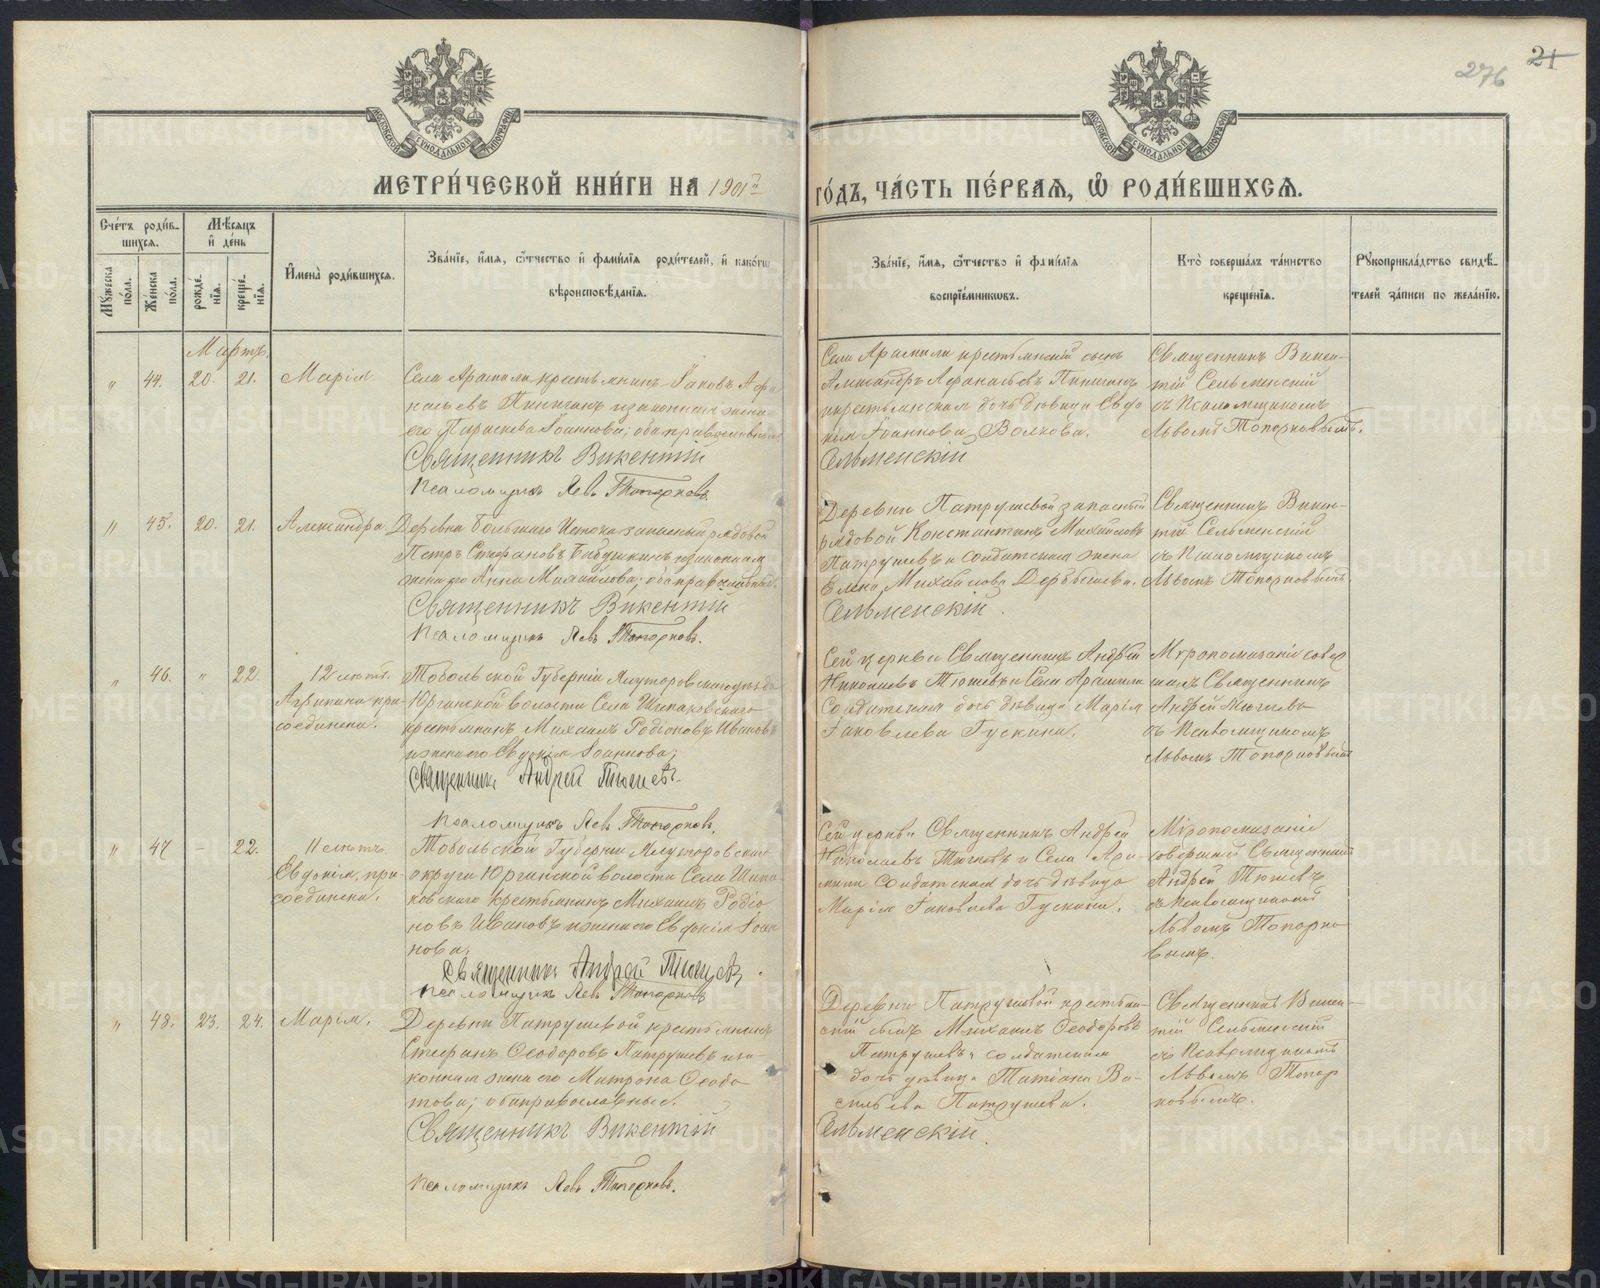 276 21
МОСКОВСКОЙ СѴНОДАЛЬНОЙ ТИПОГРАФІИ
МОСКОВСКОЙ СѴНОДАЛЬНОЙ ТИПОГРАФІИ
МЕТРИ́ЧЕСКОЙ КНИ́ГИ НА 1901й ГО́ДЪ, ЧА́СТЬ ПЕ́РВАЯ, Ѽ РОДИ́ВШИХСЯ.
Сче́тъ роди́вшихся.
Мꙋ́жеска по́ла.
Же́нска по́ла.
Мѣ́сяцъ и҆ де́нь
рожде́нїя.
креще́нїя.
И҆мена̀ роди́вшихся.
Зва́нїе, и҆́мя, ѻ҆́тчество и҆ фами́лїя роди́телей, и҆ како́гѡ
вѣроисповѣ́данїя.
Зва́нїе, и҆́мя, ѻ҆́тчество и҆ фами́лїя
воспрїе́мникѡвъ.
Кто̀ соверша́лъ та́инство
креще́нїя.
Рꙋкоприкла́дство свидѣ́-
телей за́писи по жела́нїю.
Мартъ.
„ 44. 20. 21. Марія
Села Арамили крестьянинъ Іаковъ Афа-
насьевъ Пиньгинъ и законная жена
его Параскева Іоаннова; оба православные
Священникъ Викентій
Псаломщикъ Левъ Топорковъ.
Села Арамили крестьянскій сынъ
Александръ Афанасьевъ Пиньгинъ
и крестьянская дочь дѣвица Евдо
кія Іоаннова Волкова.
Сельменскій
Священникъ Викен-
тій Сельменскій
съ Псаломщикомъ
Львомъ Топорковымъ.
„ 45. 20. 21. Александра.
Деревни Большаго Истока запасный рядовой
Петръ Стефановъ Бабушкинъ и законная
жена его Анна Михайлова; оба православные.
Священникъ Викентій
Псаломщикъ Левъ Топорковъ.
Деревни Патрушевой запасный
рядовой Константинъ Михайловъ
Патрушевъ и солдатская жена
Елена Михайлова Дерябышева.
Сельменскій.
Священникъ Викен-
тій Сельменскій
съ Псаломщикомъ
Львомъ Топорковымъ.
„ 46. „ 22. 12 лѣтъ.
Агрипина при-
соединена.
Тобольской Губерніи Ялуторовскаго уѣзда
Юргинской волости Села Шипаковскаго
крестьянинъ Михаилъ Родіоновъ Ивановъ
и жена его Евдокія Іоаннова;
Священникъ Андрей Тюшевъ.
Псаломщикъ Левъ Топорковъ.
Сей церкви Священникъ Андрей
Николаевъ Тюшевъ и Села Арамили
Солдатская дочь дѣвица Марія
Іаковлева Гускина.
Мѵропомазаніе совер
шалъ Священникъ
Андрей Тюшевъ
съ Псаломщикомъ
Львомъ Топорковымъ
„ 47 – 22. 11 лѣтъ.
Евдокія, при-
соединена.
Тобольской Губерніи Ялуторовскаго
округа Юргинской волости Села Шипа-
ковскаго Крестьянинъ Михаилъ Родіо-
новъ Ивановъ и жена его Евдокія Іоан
нова;
Священникъ Андрей Тюшевъ.
Псаломщикъ Левъ Топорковъ
Сей церкви Священникъ Андрей
Николаевъ Тюшевъ и Села Ара-
мили Солдатская дочь дѣвица
Марія Іаковлева Гускина.
Мѵропомазаніе
совершалъ Священникъ
Андрей Тюшевъ
съ Псаломщикомъ
Львомъ Топорко-
вымъ.
„ 48. 23. 24. Марія.
Деревни Патрушевой крестьянинъ
Стефанъ Ѳеодоровъ Патрушевъ и за-
конная жена его Матрона Ѳеодо
това; оба православные.
Священникъ Викентій
Псаломщикъ Левъ Топорковъ.
Деревни Патрушевой крестьян-
скій сынъ Михаилъ Ѳеодоровъ
Патрушевъ и солдатская
дочь дѣвица Татіана Ва-
сильева Патрушева.
Сельменскій.
Священникъ Викен-
тій Сельменскій
съ Псаломщикомъ
Львомъ Топор
ковымъ.
METRIKI.GASO-URAL.RU